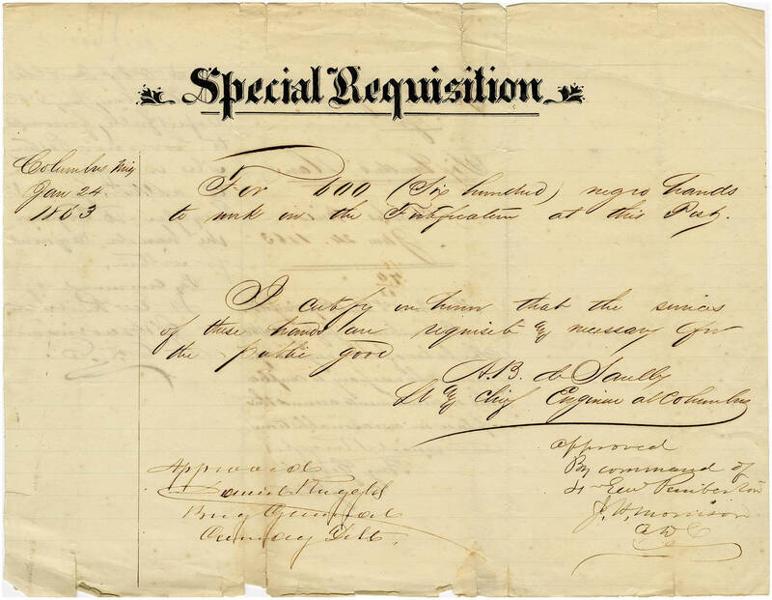 Special Requisition
Columbus Mis
Jan 24.
1863
For 600 (Six hundred) negro hands
to work in the Fortification at this Post.
I certify on honor that the services
of these hands are requisite & necessary for
the public good
A.B. de Saulles
Lt & Chief Engineer at Columbus
Approved
Daniel Ruggles
Brig General
approved
By command of
Lt Gen Pemberton
J.H. Morrison
A D C